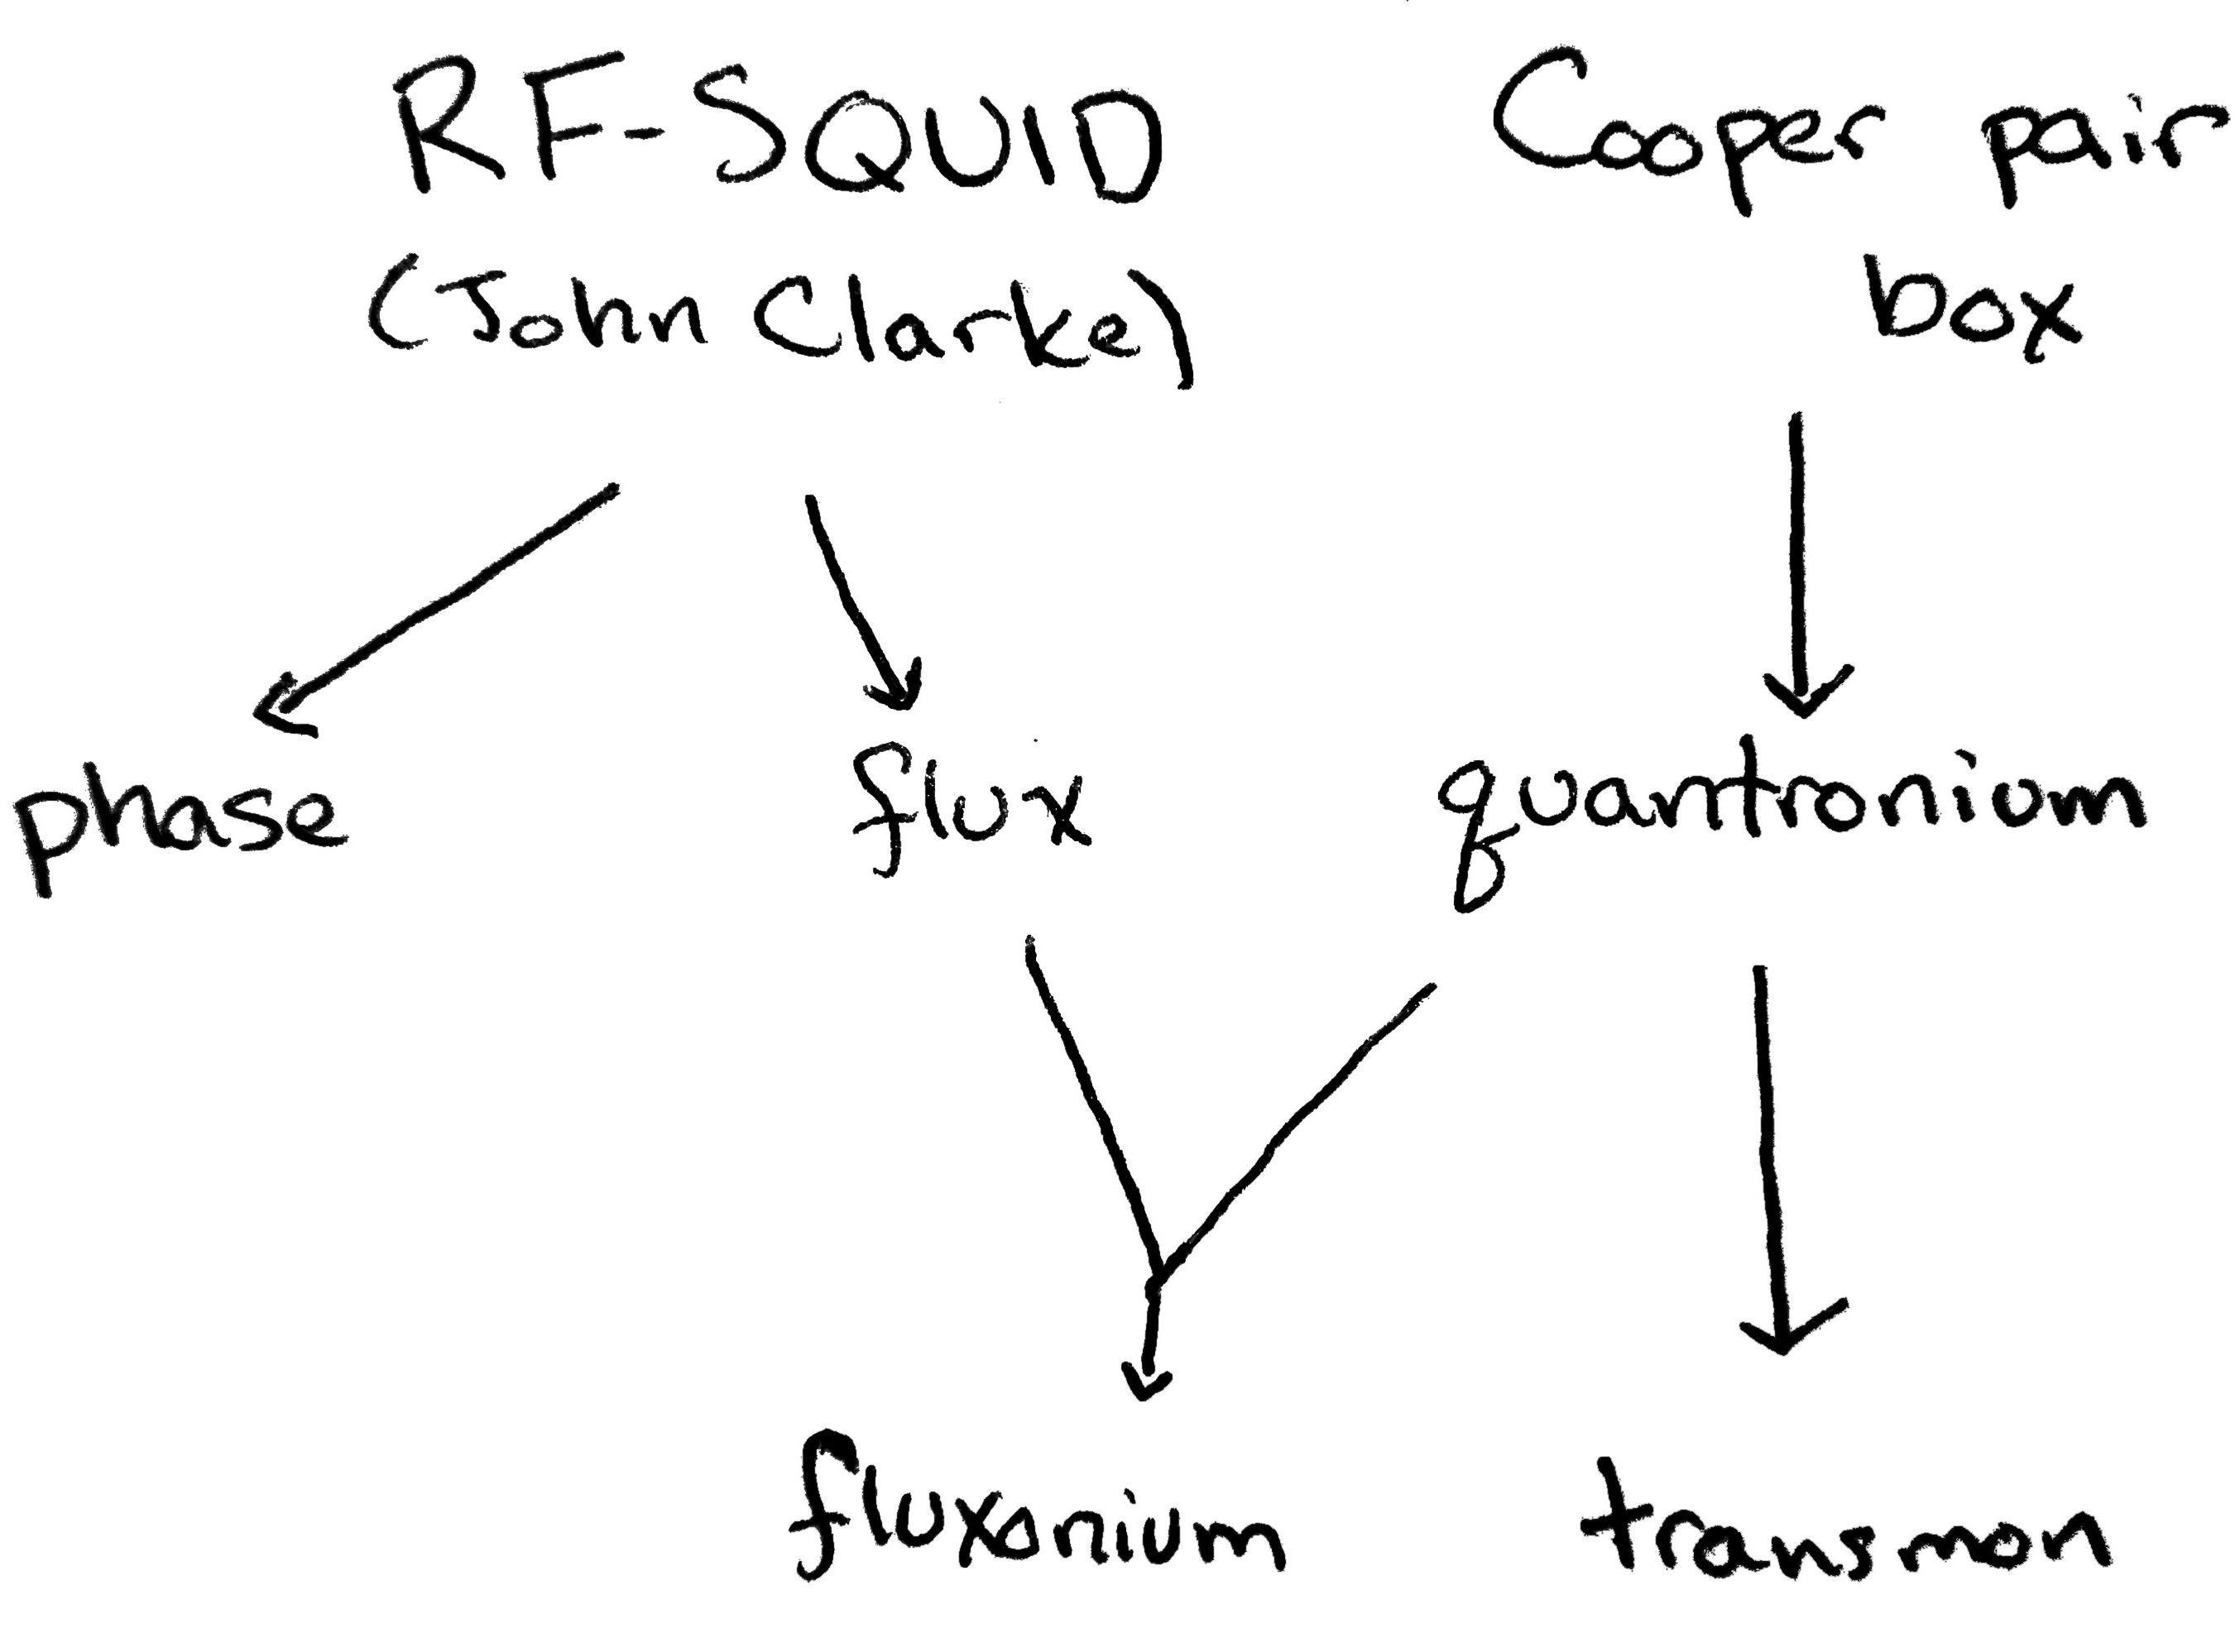 RF-SQUID
(John Clarke)
Cooper pair
box
phase
flux
quantronium
fluxonium
transmon